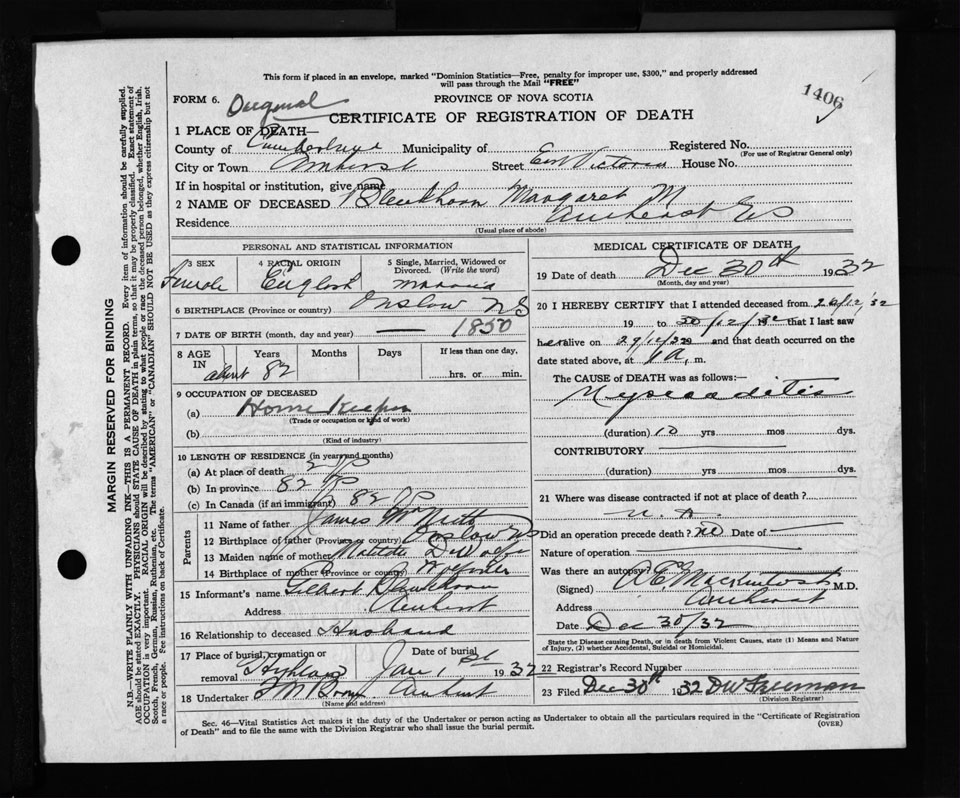 This form if placed in an envelope, marked "Dominion Statistics—Free, penalty for improper use, $300," and properly addressed
will pass through the Mail "FREE"
1406
FORM 6.
PROVINCE OF NOVA SCOTIA
CERTIFICATE OF REGISTRATION OF DEATH
1 PLACE OF DEATH—
County of Municipality of Registered No.
(For use of Registrar General only)
City or Town Amherst Street East Victoria House No.
If in hospital or institution, give name
2 NAME OF DECEASED Margaret M
Residence Amherst NS
(Usual place of abode)
PERSONAL AND STATISTICAL INFORMATION
3 SEX 4 RACIAL ORIGIN 5 Single, Married, Widowed or
Divorced. (Write the word)
Female English Married
6 BIRTHPLACE (Province or country) Onslow NS
7 DATE OF BIRTH (month, day and year) — 1850
8 AGE IN Years Months Days If less than one day,
about 82 hrs. or min.
9 OCCUPATION OF DECEASED
(a) Home Keeper
(Trade or occupation or kind of work)
(b)
(Kind of industry)
10 LENGTH OF RESIDENCE (in years and months)
(a) At place of death
(b) In province 82
(c) In Canada (if an immigrant) 82
Parents
11 Name of father James
12 Birthplace of father (Province or country) Onslow NS
13 Maiden name of mother Matilda DeWolfe
14 Birthplace of mother (Province or country)
15 Informant's name Gilbert
Address Amherst
16 Relationship to deceased Husband
17 Place of burial, cremation or Date of burial
removal Highland Jan 1st 1932
18 Undertaker Amherst
(Name and address)
MEDICAL CERTIFICATE OF DEATH
19 Date of death Dec 30th 1932
(Month, day and year)
20 I HEREBY CERTIFY that I attended deceased from /12/32
19 to 30/12/32 19 that I last saw
her alive on 29/12/32 and that death occurred on the
date stated above, at 1 a. m.
The CAUSE OF DEATH was as follows:
Myocarditis
(duration) 10 yrs mos dys.
CONTRIBUTORY
(duration) yrs. mos. dys.
21 Where was disease contracted if not at place of death?
Did an operation precede death? no Date of —
Nature of operation
Was there an autopsy?
(Signed) Mackintosh M.D.
Address Amherst
Date Dec 30/32
State the Disease causing Death, or in death from Violent Causes, state (1) Means and Nature
of Injury, (2) whether Accidental, Suicidal or Homicidal.
22 Registrar's Record Number
23 Filed Dec 30th 1932 DW Freeman
(Division Registrar)
Sec. 46—Vital Statistics Act makes it the duty of the Undertaker or person acting as Undertaker to obtain all the particulars required in the "Certificate of Registration
of Death" and to file the same with the Division Registrar who shall issue the burial permit.
(OVER)
MARGIN RESERVED FOR BINDING
N.B.—WRITE PLAINLY WITH UNFADING INK—THIS IS A PERMANENT RECORD. Every item of information should be carefully supplied.
AGE should be stated EXACTLY. PHYSICIANS should STATE CAUSE OF DEATH in plain terms, so that it may be properly classified. Exact statement of
OCCUPATION is very important. RACIAL ORIGIN will be described by stating to what people or race the deceased person belonged, whether English, Irish,
Scotch, French, German, Russian, Ruthenian, etc. The terms "AMERICAN" or "CANADIAN" SHOULD NOT BE USED as they express citizenship but not
a race or people. See instructions on back of Certificate.